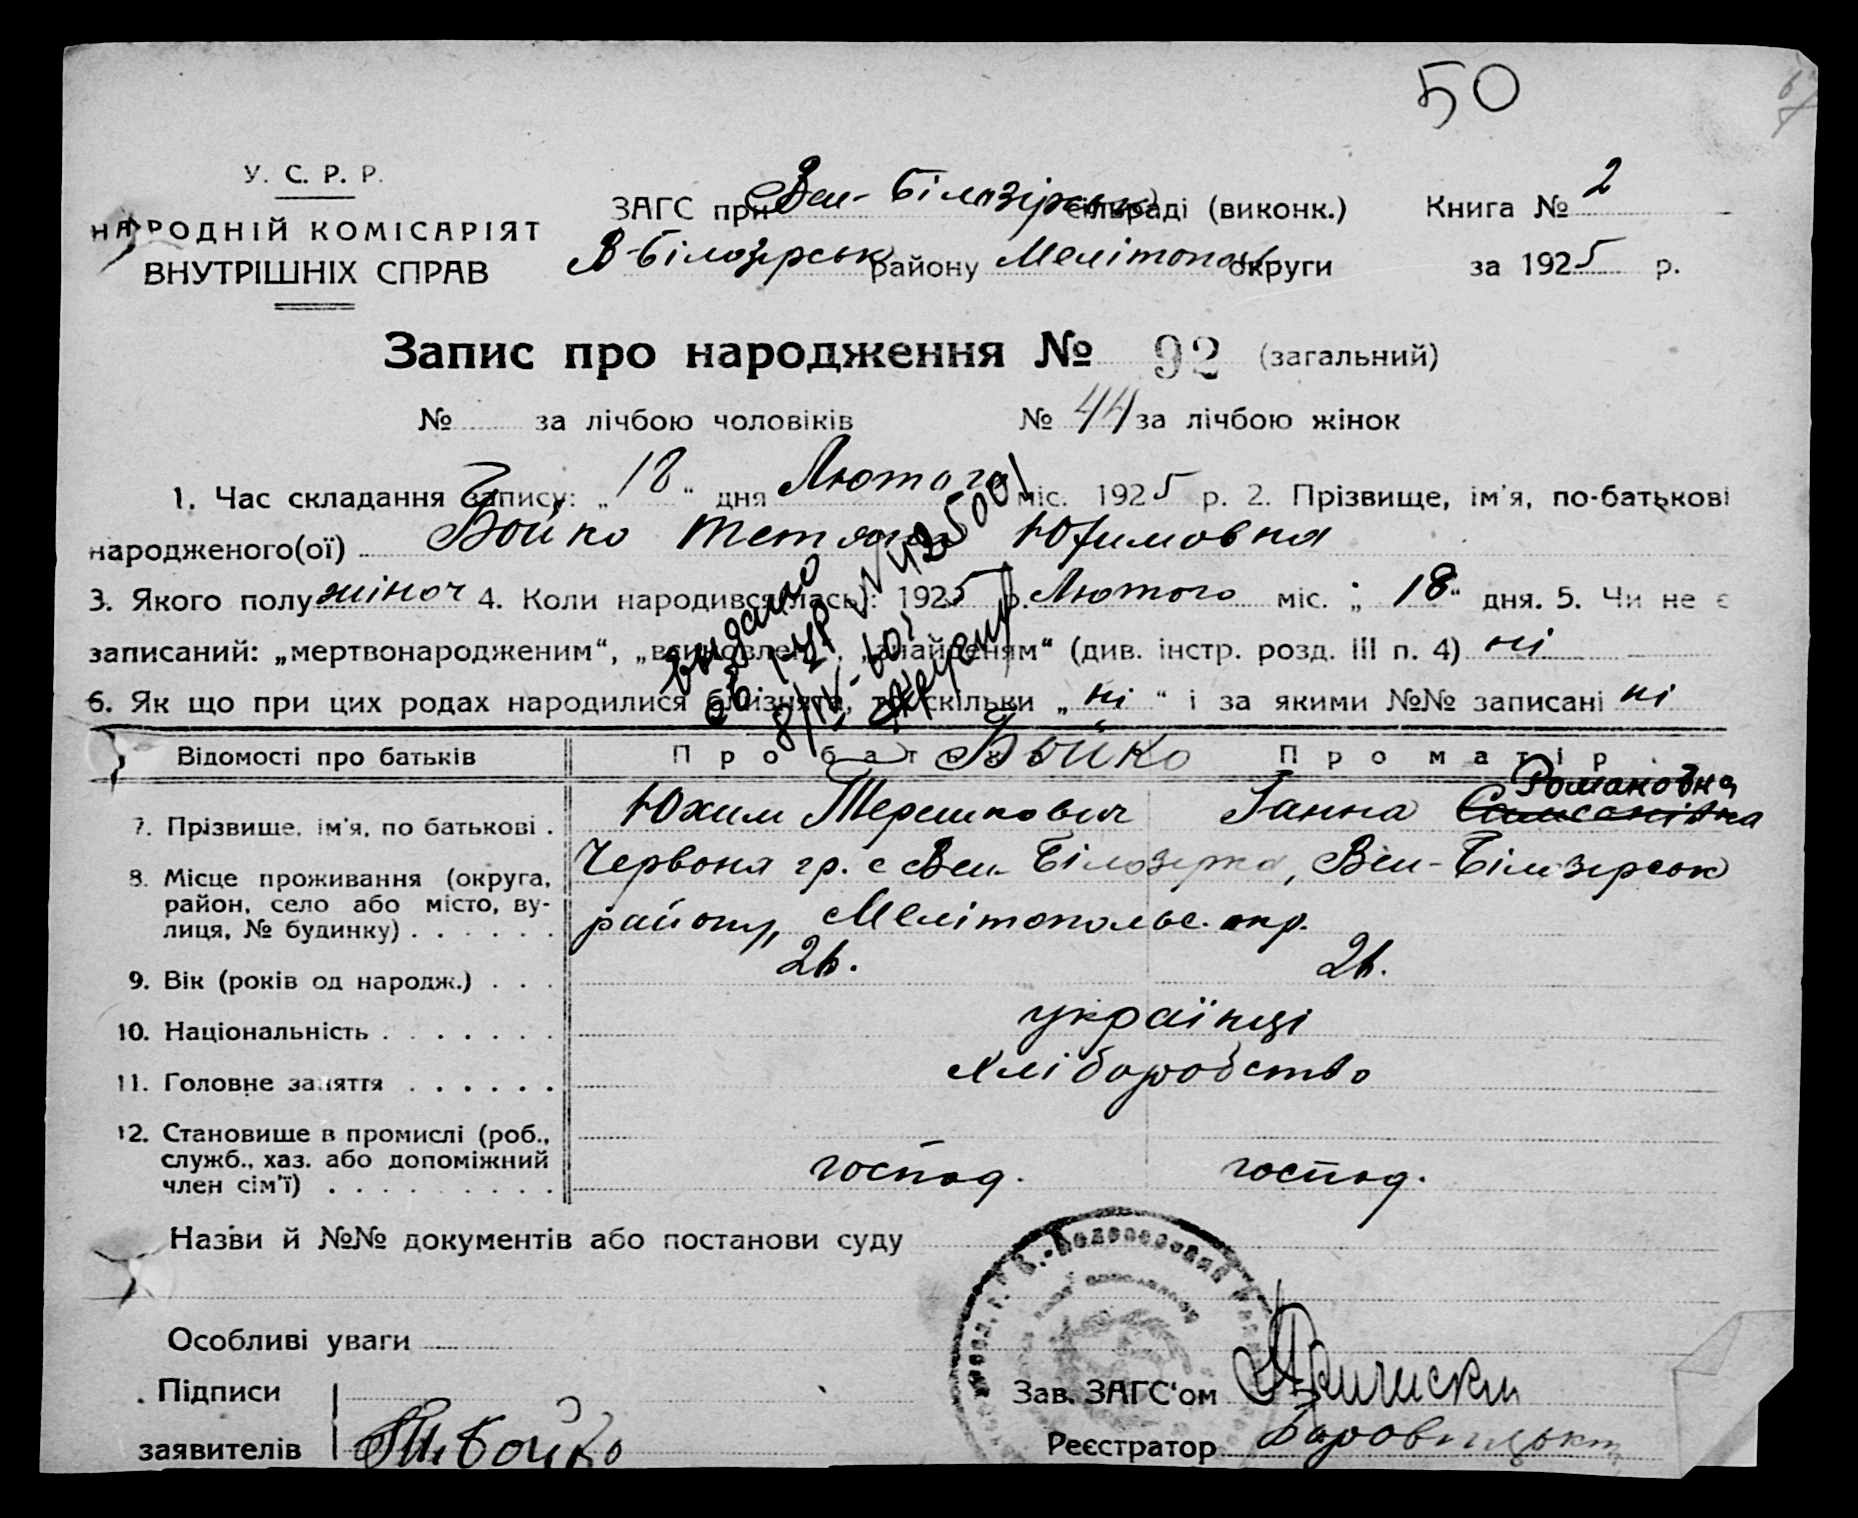 50
У. С. Р. Р.
НАРОДНІЙ КОМІСАРІЯТ
ВНУТРІШНІХ СПРАВ
ЗАГС при Вел-Білозірськ сільраді (виконк.) Книга № 2
В-Білозірськ району Мелітопол округи за 1925 р.
Запис про народження № 92 (загальний)
№ за лічбою чоловіків № 44 за лічбою жінок
1. Час складання запису: „18“ дня Лютого міс. 1925 р. 2. Прізвище, ім'я, по-батькові
народженого(ої) Бойко Тетяна Юхимовна
3. Якого полу жіноч 4. Коли народився(лась): 1925 р. Лютого міс. „18“ дня. 5. Чи не є
записаний: „мертвонародженим“, „всиновленим“, „знайденям“ (див. інстр. розд. III п. 4) ні
6. Як що при цих родах народилися близнята, то скільки „ні“ і за якими №№ записані ні
видано
8/IV-60г
Відомості про батьків Про батька Бойко Про матір
7. Прізвище, ім'я, по батькові . Юхим Терешкович Ганна Самсонівна Романовна
8. Місце проживання (округа, Червоня гр. с Вел-Білозерка, Вел-Білозерськ
район, село або місто, ву-
лиця, № будинку) . . . . . . району, Мелітопольс. окр.
9. Вік (років од народж.) . . .
10. Національність . . . . . . . українці
11. Головне заняття . . . . . . хліборобство
12. Становище в промислі (роб.,
служб., хаз. або допоміжний
член сім'ї) . . . . . . . . . . господ. господ.
Назви й №№ документів або постанови суду
Особливі уваги
Підписи
Зав. ЗАГС'ом
заявителів Бойко
Реєстратор